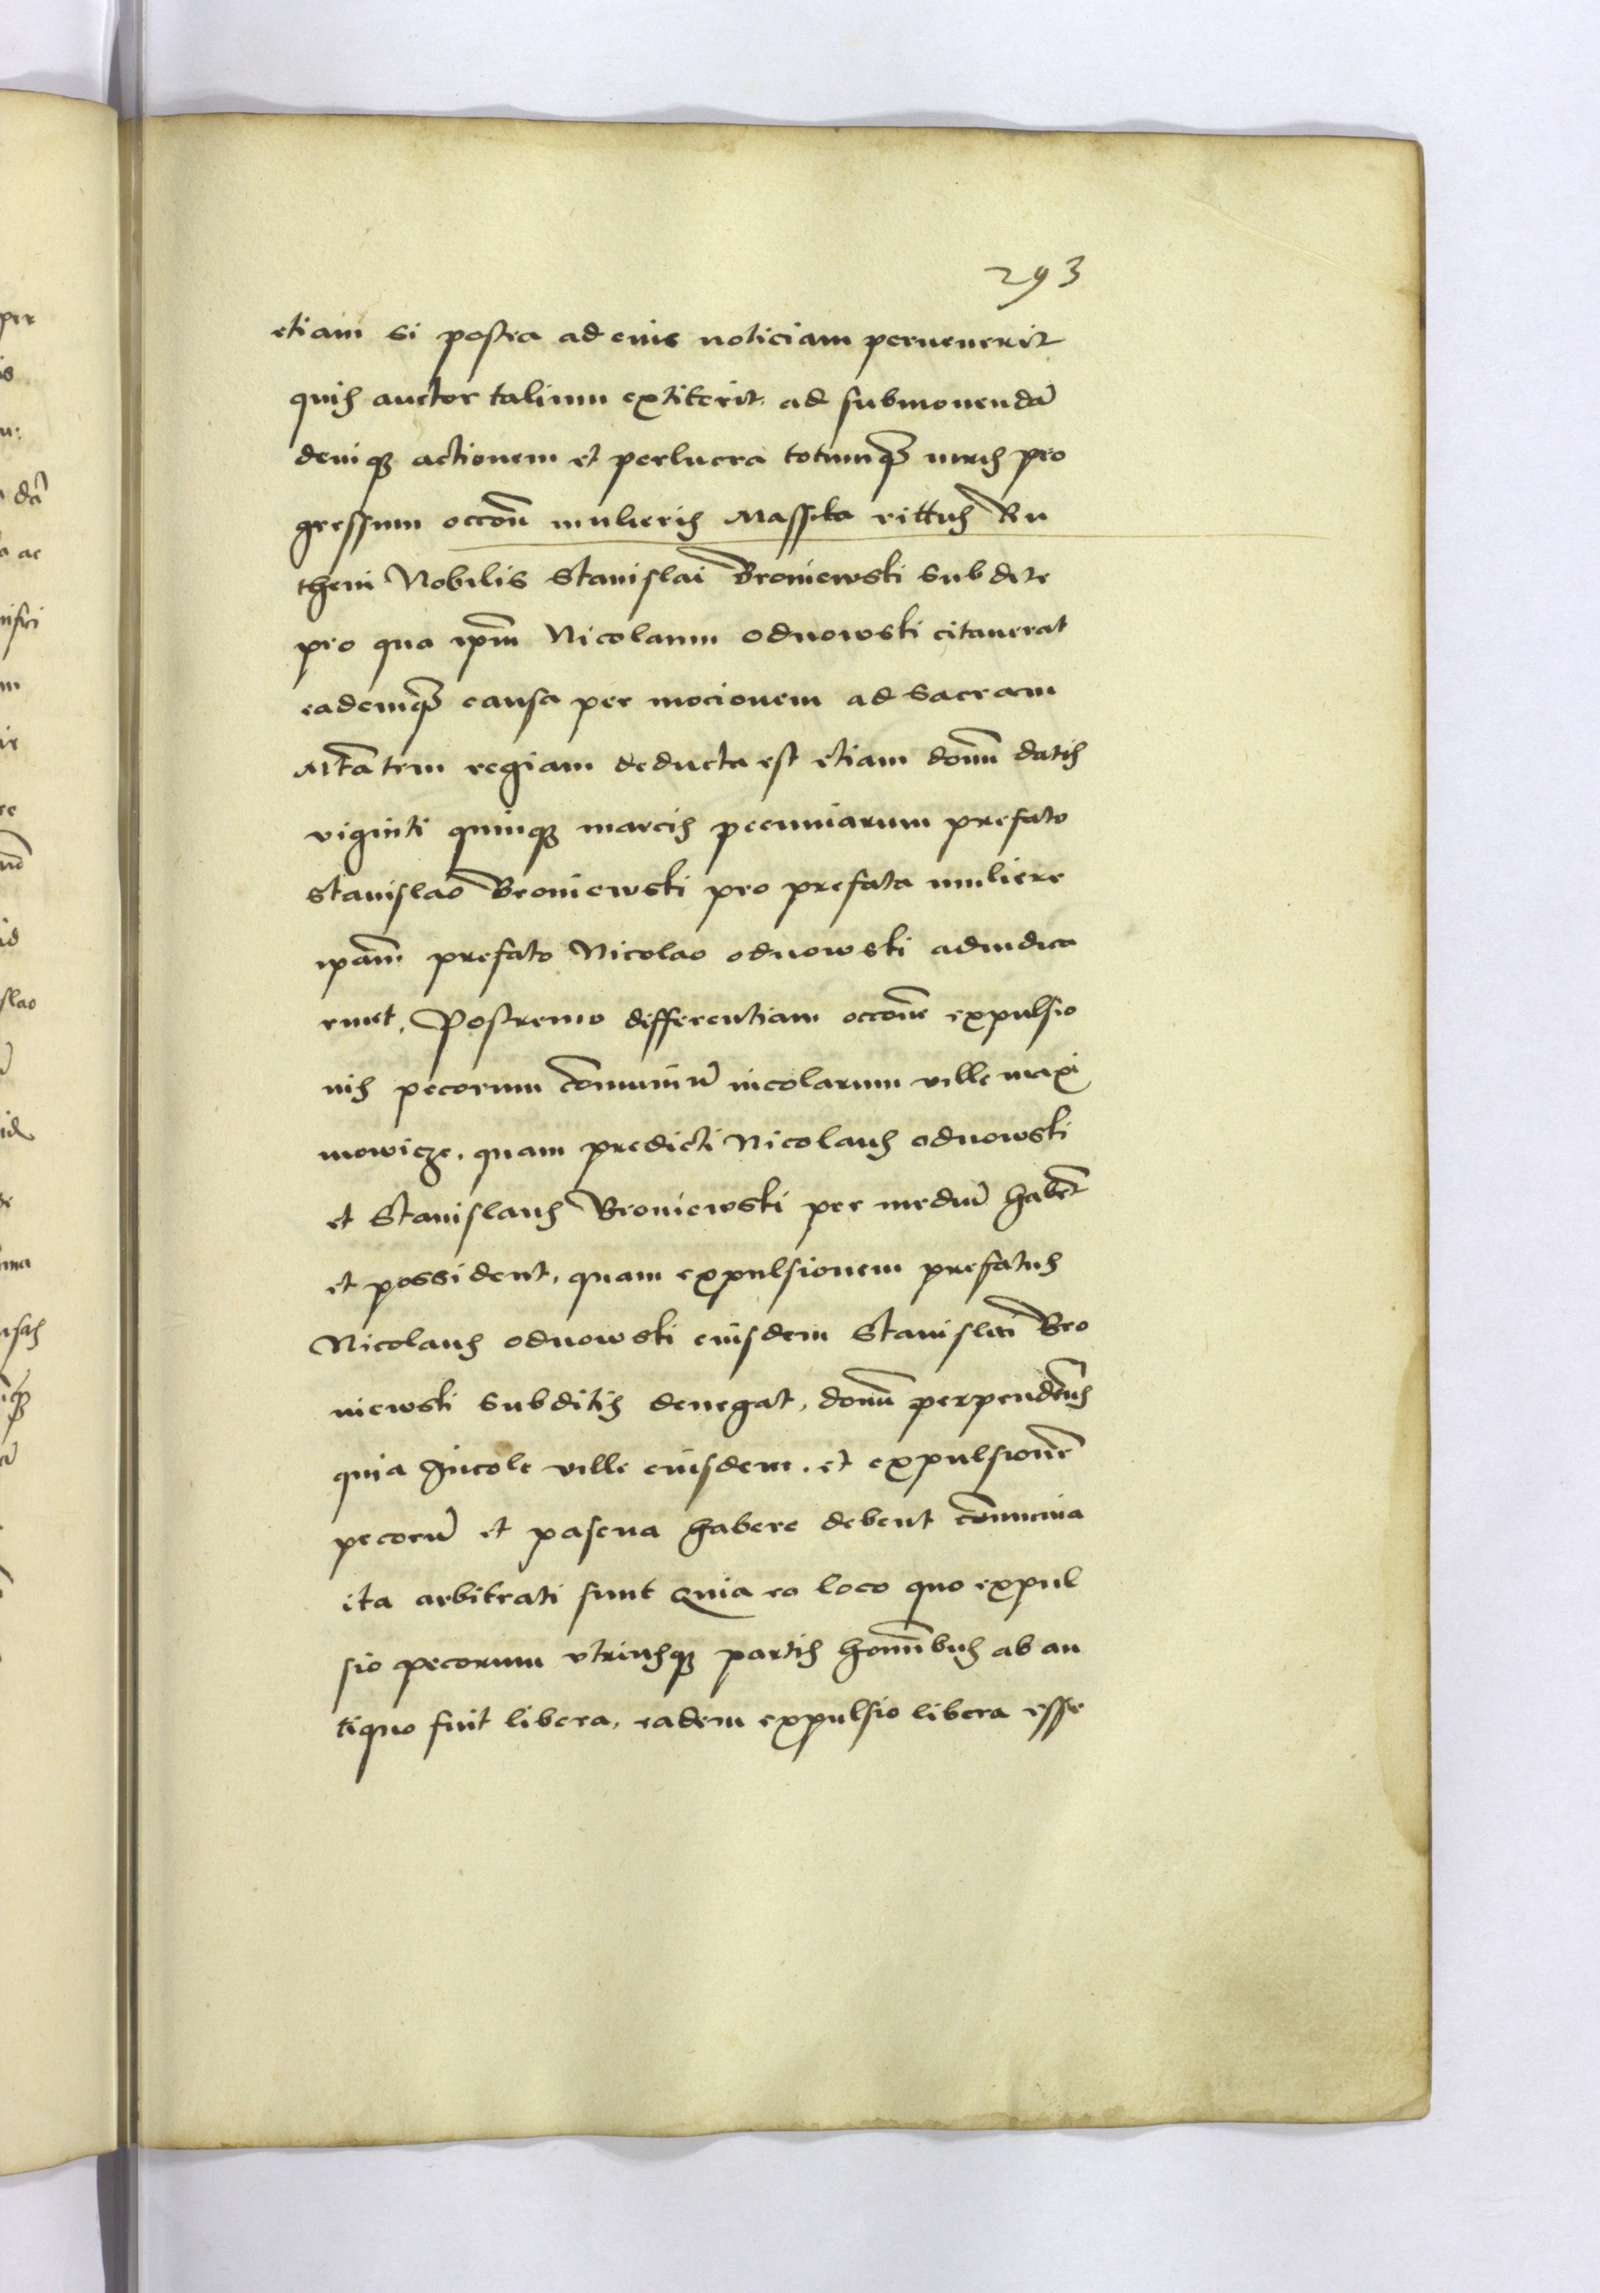 293
etiam si postea ad eius noticiam pervenerit
quis auctor talium extiterit. ad submovendā
deniqꝫ actionem et perlucra totumqꝫ iuris pro
gressum occōn mulieris Massita rittus Ru
theni Nobilis Stanislai Broniewski subdite
pro qua ipm̄ Nicolaum Odnowski citaverat
eademqꝫ causa per mocionem ad sacram
Mtātem regiam deducta est etiam domī datis
viginti quinqꝫ marcis pecuniarum prefato
Stanislao Broniewski pro prefata muliere
ipam̄ prefato Nicolao odnowski adiudica
runt. Postremo differentiam occone expulsio
nis pecorum comuniū incolarum ville maxi
mowicze. quam predicti Nicolaus odnowski
et Stanislaus Broniewski per mediū habēt
et possident. quam expulsionem prefatus
Nicolaus odnowski eiusdem Stanislai Bro
niewski subditis denegat, domī perpendētes
quia Incole ville eiusdem. et expulsionē
pecorū et pascua habere debent cōmunia
ita arbitrati sunt Quia eo loco quo expul
sio pecorum utriusqꝫ partis homībus ab an
tiquo fuit libera, eadem expulsio libera esse